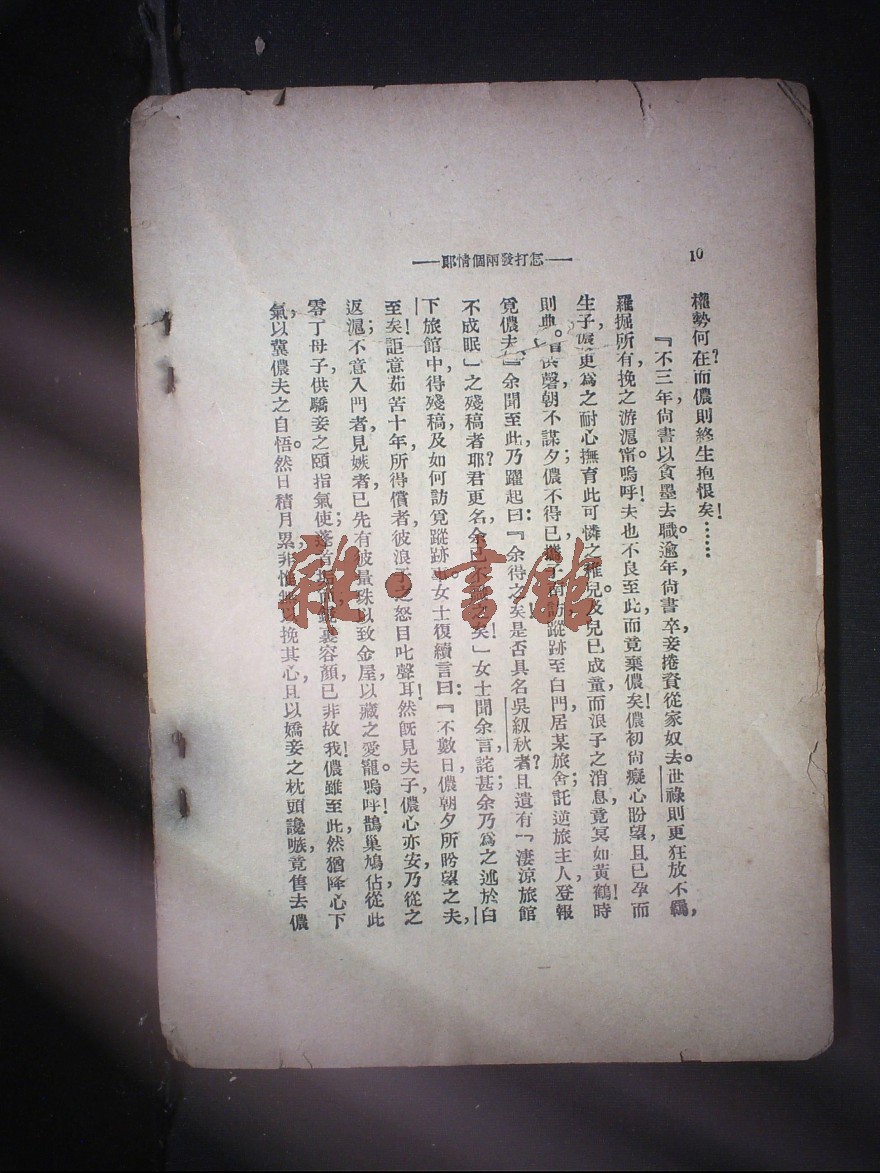 10
——怎打發兩個情郎——
權勢何在?而儂則終生抱恨矣!……
『不三年,尙書以貪墨去職。逾年,尙書卒,妾捲資從家奴去。世祿則更狂放不羈,
羅掘所有,挽之游滬甯。嗚呼!夫也不良至此,而竟棄儂矣!儂初尙癡心盼望,且已孕而
生子,儂更爲之耐心撫育此可憐之稚兒。及兒已成童,而浪子之消息,竟冥如黃鶴!時
則典 俱罄,朝不謀夕;儂不得已,攜子 訪蹤跡至白門,居某旅舍;託逆旅主人登報
覓儂夫。』余聞至此,乃躍起曰:『余得之矣!是否具名吳級秋者?且遺有「淒涼旅館
不成眠」之殘稿者耶?君更名,余已不 之矣!」女士聞余言,詫甚;余乃爲之述於白
下旅館中,得殘稿,及如何訪覓蹤跡事。女士復續言曰:『不數日,儂朝夕所盼望之夫,
至矣!詎意茹苦十年,所得償者,彼浪子之怒目叱聲耳!然旣見夫子,儂心亦安,乃從之
返滬;不意入門者見嫉者已先有彼量珠以致金屋以藏之愛寵。嗚呼!鵲巢鳩佔,從此
零丁母子,供驕妾之頤指氣使;蓬首垢面,鏡裏容顏,已非故我!儂雖至此,然猶降心下
氣,以冀儂夫之自悟。然日積月累,非惟無以挽其心,且以嬌妾之枕頭讒嗾,竟售去儂
雜·書館